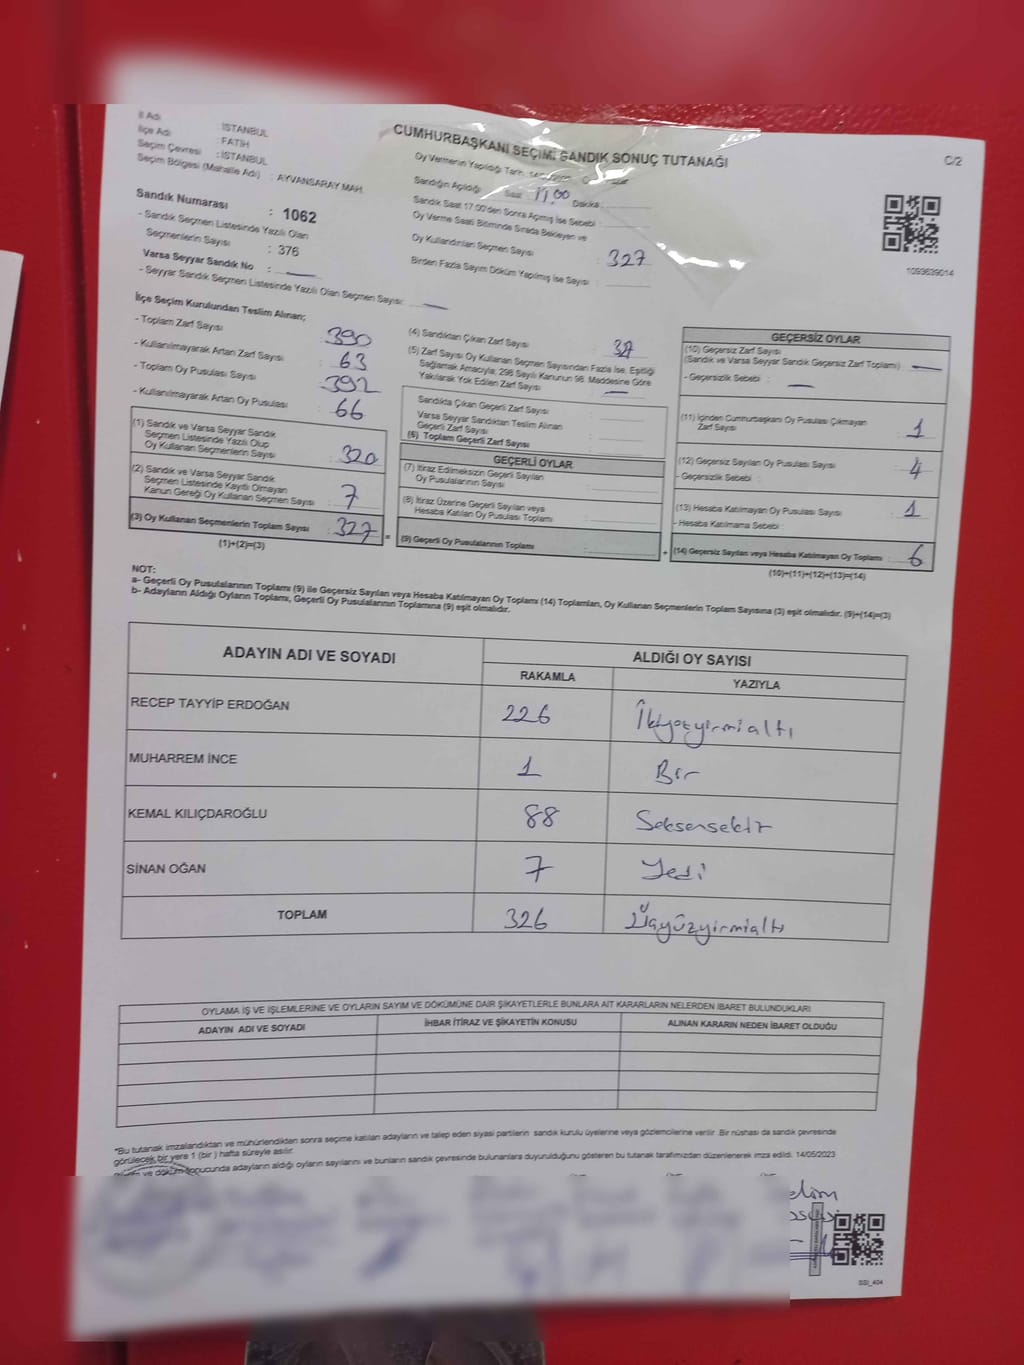 CUMHURBAŞKANI SEÇİMİ SANDIK SONUÇ TUTANAĞI
C/2
İl Adı : İSTANBUL
İlçe Adı : FATİH
Seçim Çevresi : İSTANBUL
Seçim Bölgesi (Mahalle Adı) : AYVANSARAY MAH.
Sandık Numarası : 1062
- Sandık Seçmen Listesinde Yazılı Olan
Seçmenlerin Sayısı : 376
Varsa Seyyar Sandık No : —
- Seyyar Sandık Seçmen Listesinde Yazılı Olan Seçmen Sayısı: —
Oy Vermenin Yapıldığı Tarih
Sandığın Açıldığı Saat : 17,00 Dakika :
Sandık Saat 17.00'den Sonra Açılmış İse Sebebi :
Oy Verme Saati Bitiminde Sırada Bekleyen ve
Oy Kullandırılan Seçmen Sayısı : 327
Birden Fazla Sayım Döküm Yapılmış İse Sayısı :
1093639014
İlçe Seçim Kurulundan Teslim Alınan;
- Toplam Zarf Sayısı : 390
- Kullanılmayarak Artan Zarf Sayısı : 63
- Toplam Oy Pusulası Sayısı : 392
- Kullanılmayarak Artan Oy Pusulası : 66
(1) Sandık ve Varsa Seyyar Sandık
Seçmen Listesinde Yazılı Olup
Oy Kullanan Seçmenlerin Sayısı : 320
(2) Sandık ve Varsa Seyyar Sandık
Seçmen Listesinde Kayıtlı Olmayan
Kanun Gereği Oy Kullanan Seçmen Sayısı : 7
(3) Oy Kullanan Seçmenlerin Toplam Sayısı : 327
(1)+(2)=(3)
=
(4) Sandıktan Çıkan Zarf Sayısı :
(5) Zarf Sayısı Oy Kullanan Seçmen Sayısından Fazla İse, Eşitliği
Sağlamak Amacıyla, 298 Sayılı Kanunun 98. Maddesine Göre
Yakılarak Yok Edilen Zarf Sayısı : —
Sandıkta Çıkan Geçerli Zarf Sayısı :
Varsa Seyyar Sandıktan Teslim Alınan
Geçerli Zarf Sayısı :
(6) Toplam Geçerli Zarf Sayısı :
GEÇERLİ OYLAR
(7) İtiraz Edilmeksizin Geçerli Sayılan
Oy Pusulalarının Sayısı :
(8) İtiraz Üzerine Geçerli Sayılan veya
Hesaba Katılan Oy Pusulası Toplamı :
(9) Geçerli Oy Pusulalarının Toplamı :
+
GEÇERSİZ OYLAR
(10) Geçersiz Zarf Sayısı
(Sandık ve Varsa Seyyar Sandık Geçersiz Zarf Toplamı) : —
- Geçersizlik Sebebi : —
(11) İçinden Cumhurbaşkanı Oy Pusulası Çıkmayan
Zarf Sayısı : 1
(12) Geçersiz Sayılan Oy Pusulası Sayısı : 4
- Geçersizlik Sebebi :
(13) Hesaba Katılmayan Oy Pusulası Sayısı : 1
- Hesaba Katılmama Sebebi :
(14) Geçersiz Sayılan veya Hesaba Katılmayan Oy Toplamı : 6
(10)+(11)+(12)+(13)=(14)
NOT:
a- Geçerli Oy Pusulalarının Toplamı (9) ile Geçersiz Sayılan veya Hesaba Katılmayan Oy Toplamı (14) Toplamları, Oy Kullanan Seçmenlerin Toplam Sayısına (3) eşit olmalıdır. (9)+(14)=(3)
b- Adayların Aldığı Oyların Toplamı, Geçerli Oy Pusulalarının Toplamına (9) eşit olmalıdır.
ADAYIN ADI VE SOYADI
ALDIĞI OY SAYISI
RAKAMLA YAZIYLA
RECEP TAYYİP ERDOĞAN 226 İkiyüzyirmialtı
MUHARREM İNCE 1 Bir
KEMAL KILIÇDAROĞLU 88 Seksensekiz
SİNAN OĞAN 7 Yedi
TOPLAM 326 Üçyüzyirmialtı
OYLAMA İŞ VE İŞLEMLERİNE VE OYLARIN SAYIM VE DÖKÜMÜNE DAİR ŞİKAYETLERLE BUNLARA AİT KARARLARIN NELERDEN İBARET BULUNDUKLARI
ADAYIN ADI VE SOYADI İHBAR İTİRAZ VE ŞİKAYETİN KONUSU ALINAN KARARIN NEDEN İBARET OLDUĞU
*Bu tutanak imzalandıktan ve mühürlendikten sonra seçime katılan adayların ve talep eden siyasi partilerin sandık kurulu üyelerine veya gözlemcilerine verilir. Bir nüshası da sandık çevresinde
görülecek bir yere 1 (bir ) hafta süreyle asılır.
ve döküm sonucunda adayların aldığı oyların sayılarını ve bunların sandık çevresinde bulunanlara duyurulduğunu gösteren bu tutanak tarafımızdan düzenlenerek imza edildi. 14/05/2023
SSI_404